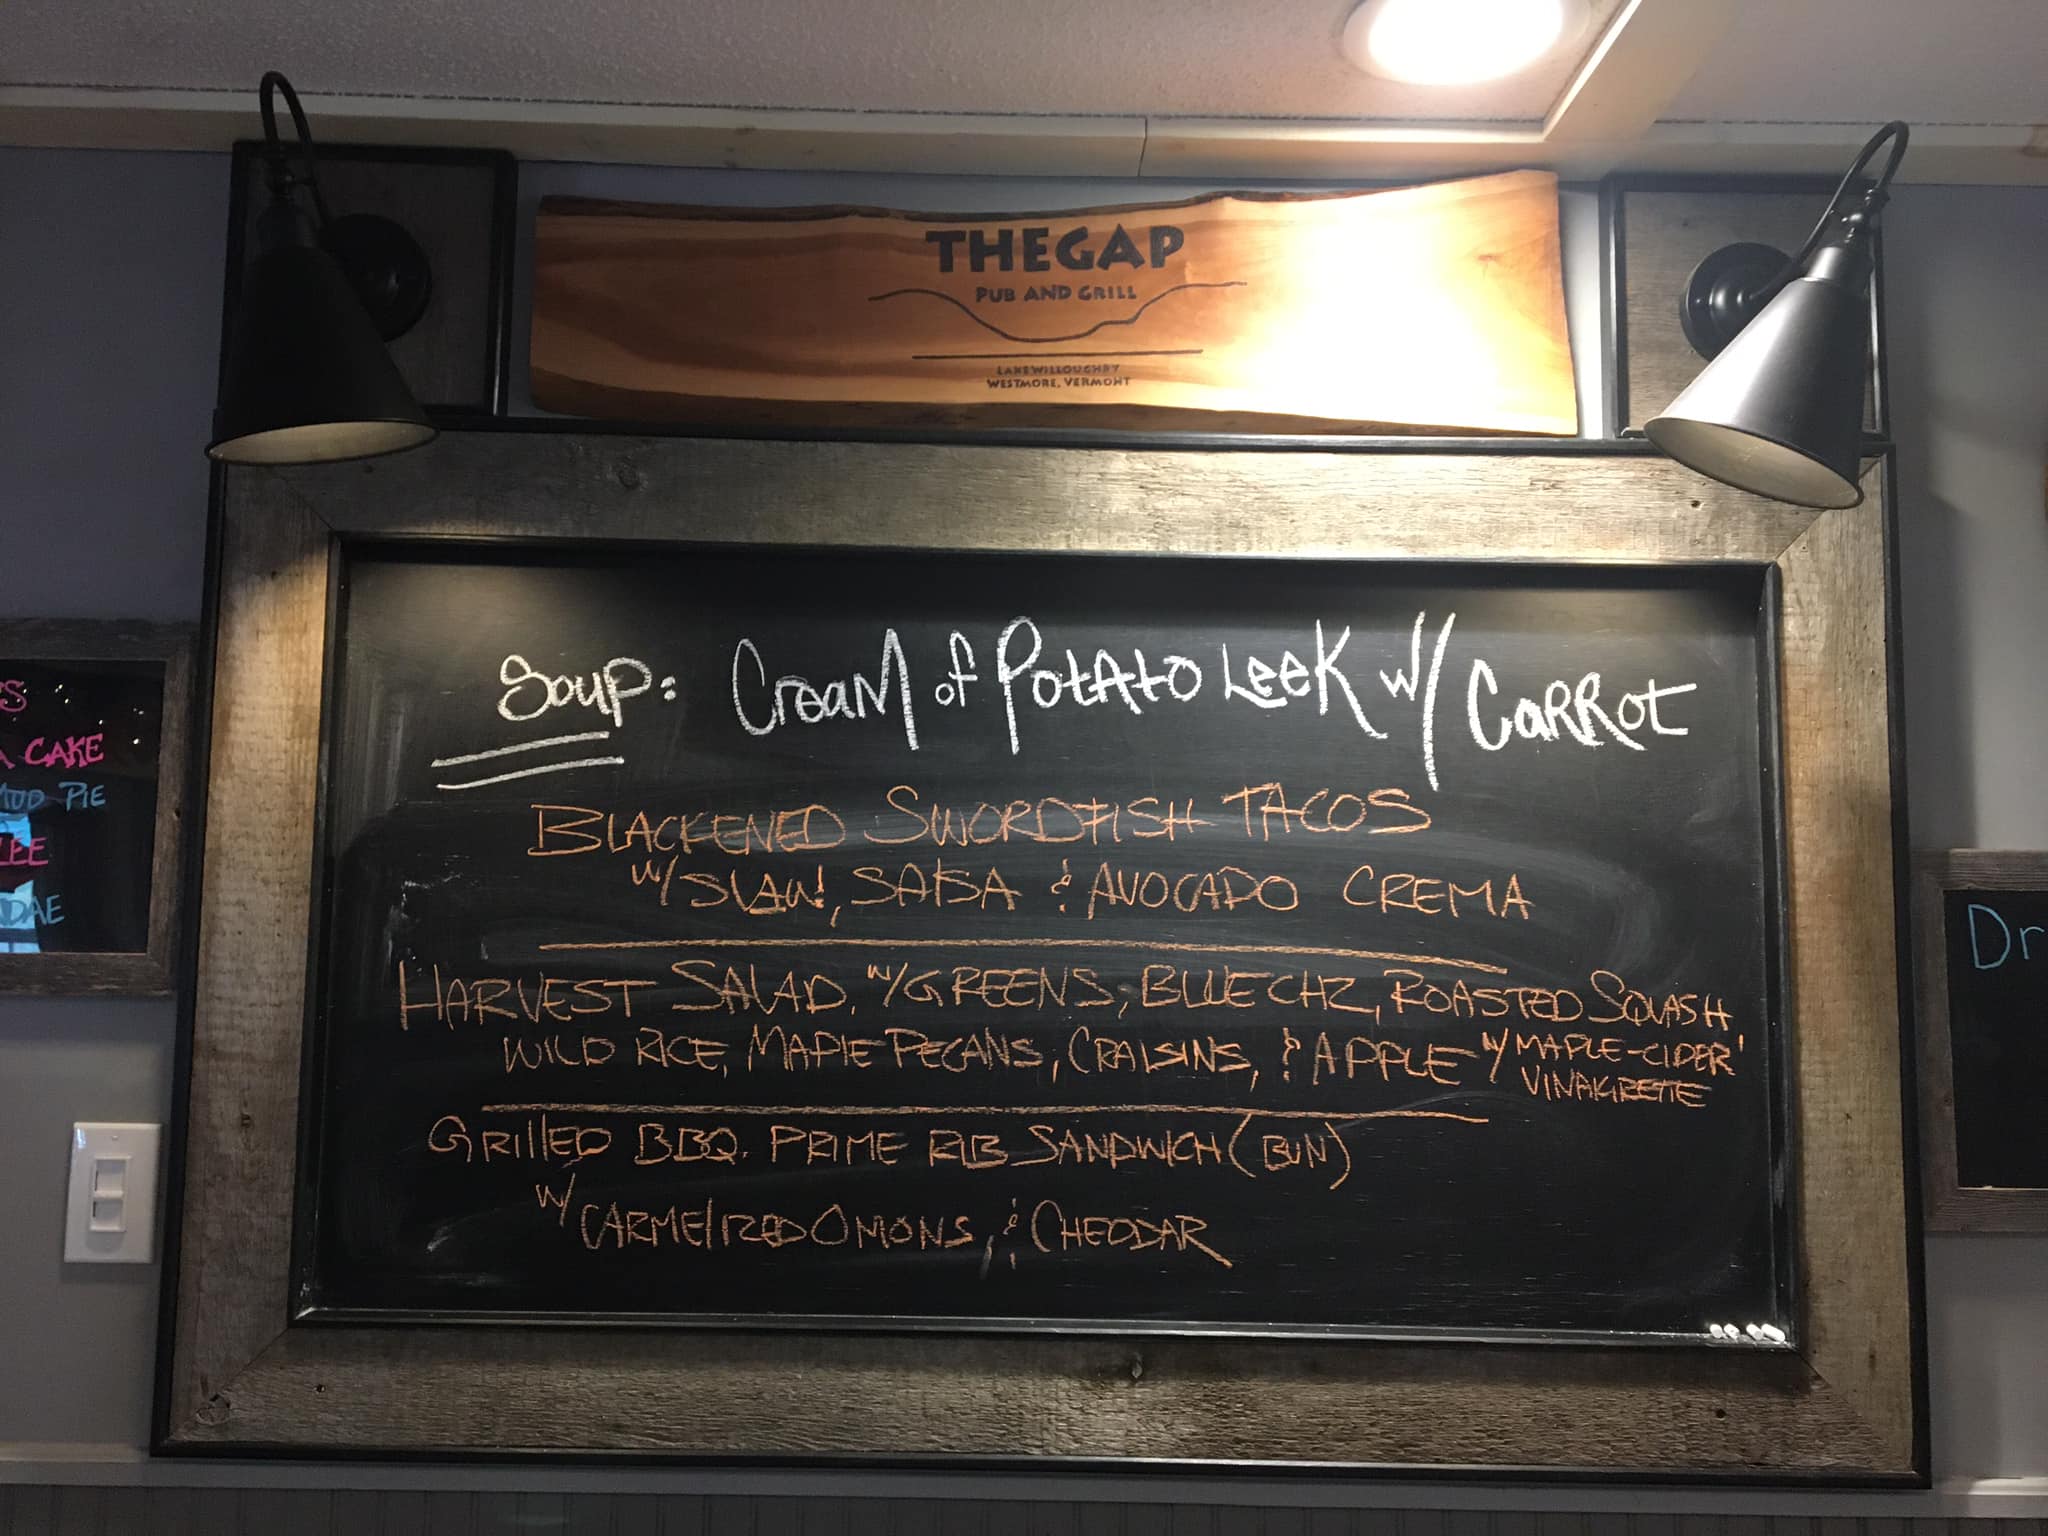 THE GAP
PUB AND GRILL
LAKE WILLOUGHBY
WESTMORE, VERMONT
Soup: Cream of Potato Leek w/ Carrot
BLACKENED SWORDFISH TACOS
w/ SLAW, SALSA & AVOCADO CREMA
HARVEST SALAD. w/ GREENS, BLUE CHZ, ROASTED SQUASH
WILD RICE, MAPLE PECANS, CRAISINS, & APPLE w/ MAPLE-CIDER
VINAIGRETTE
GRILLED BBQ. PRIME RIB SANDWICH (BUN)
w/ CARMELIZED ONIONS, & CHEDDAR
CAKE
MUD PIE
LEE
DAE
Dr